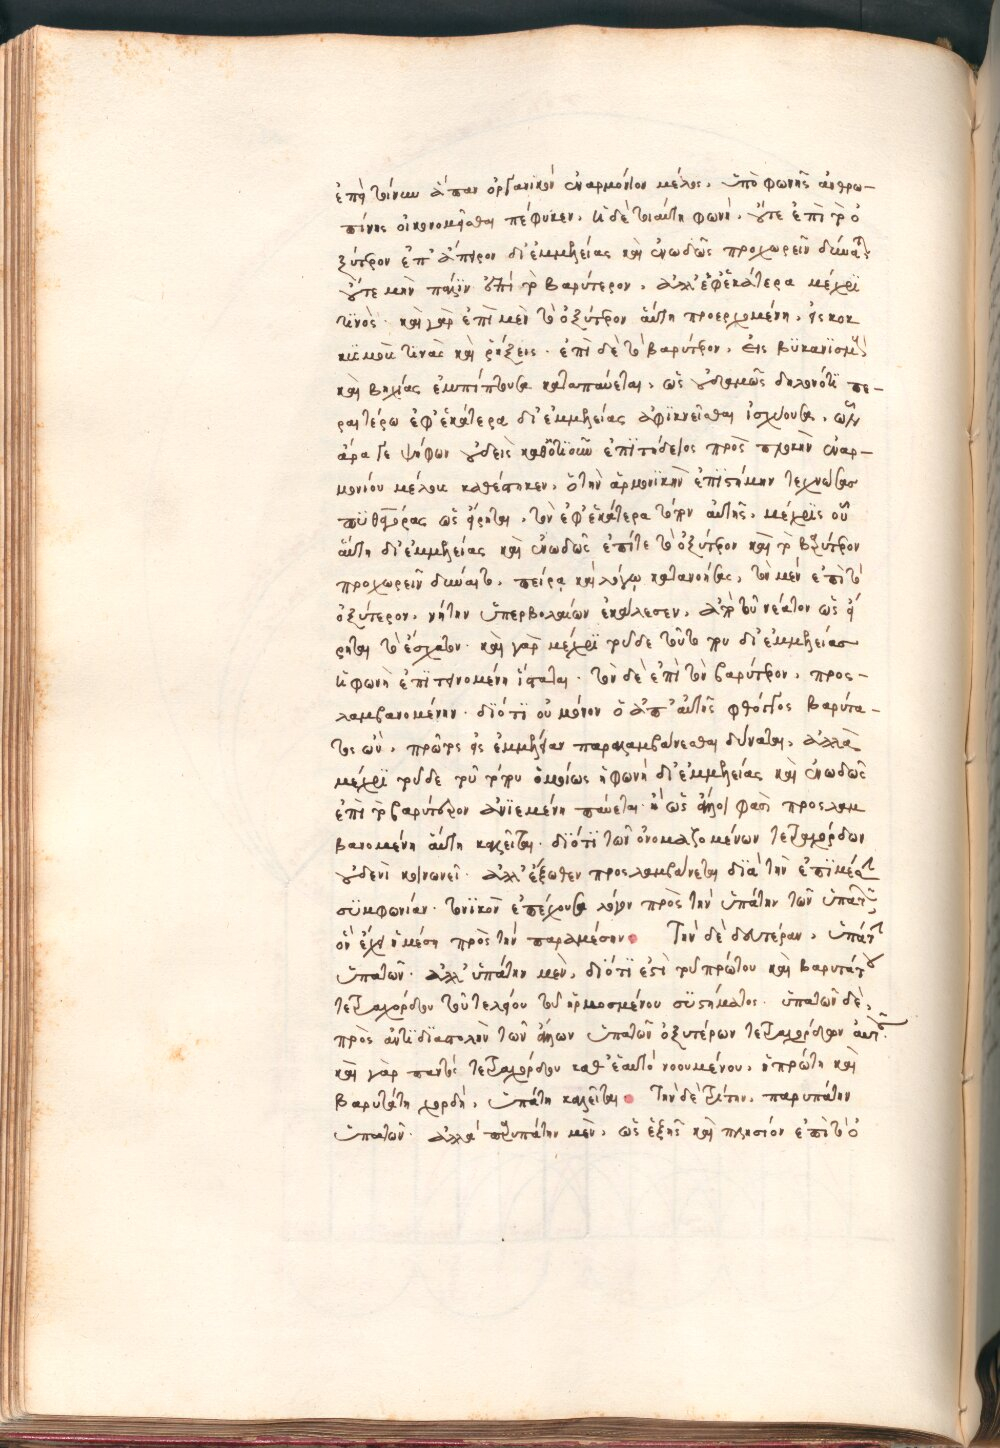 ἐπεὶ τοίνυν ἅπαν ὀργανικὸν ἐναρμόνιον μέλος, ὑπὸ φωνῆς ἀνθρω-
πίνης οἰκονομεῖσθαι πέφυκεν. ἡ δὲ τοιαύτη φωνή, οὔτε ἐπὶ τὸ ὀ
ξύτερον ἐπ' ἄπειρον δι' ἐμμελείας καὶ ἐνωδῶς προχωρεῖν δύναται
οὔτε μὴν πάλιν ἐπὶ τὸ βαρύτερον, ἀλλ' ἐφ' ἑκάτερα μέχρι
τινός· καὶ γὰρ ἐπὶ μὲν τὸ ὀξύτερον αὕτη προερχομένη, εἰς κοκ
κυσμούς τινας καὶ ῥήξεις· ἐπὶ δὲ τὸ βαρύτερον, εἰς βυκανισμοὺς
καὶ βηχίας ἐμπίπτουσα καταπαύεται, ὡς οὐδαμῶς δηλονότι πε-
ραιτέρω ἐφ' ἑκάτερα δι' ἐμμελείας ἀφικνεῖσθαι ἰσχύουσα,
ἄρα γε ψόφων οὐδεὶς καθοτιοῦν ἐπιτήδειος πρὸς πλοκὴν ἐναρ-
μονίου μέλους καθέστηκεν, ὁ τὴν ἁρμονικὴν ἐπιστήμην τεχνώσας
πυθαγόρας ὡς εἴρηται, τὸν ἐφ' ἑκάτερα τόπον αὐτῆς, μέχρις οὗ
αὕτη δι' ἐμμελείας καὶ ἐνωδῶς ἐπί τε τὸ ὀξύτερον καὶ τὸ βαρύτερον
προχωρεῖν δύναιτο, πείρᾳ καὶ λόγῳ κατανοήσας, τὸν μὲν ἐπὶ τὸ
ὀξύτερον, νήτην ὑπερβολαίων ἐκάλεσεν, ἀπὸ τοῦ νέατον ὡς εἴ
ρηται τὸ ἔσχατον· καὶ γὰρ μέχρι τοῦδε τοῦ τόπου δι' ἐμμελείας
ἡ φωνὴ ἐπιτεινομένη ἵσταται· τὸν δὲ ἐπὶ τὸν βαρύτερον, προς-
λαμβανομένην· διότι οὐ μόνον ὁ ἀπ' αὐτῆς φθόγγος βαρύτα-
τος ὢν, πρῶτος εἰς ἐμμέλειαν παραλαμβάνεσθαι δύναται, ἀλλὰ
μέχρι τοῦδε τοῦ τόπου ὁμοίως ἡ φωνὴ δι' ἐμμελείας καὶ ἐνωδῶς
ἐπὶ τὸ βαρύτερον ἀνιεμένη παύεται· ἢ ὡς ἄλλοι φασὶ προςλαμ
βανομένη αὕτη καλεῖται· διότι τῶν ὀνομαζομένων τετραχόρδων
οὐδενὶ κοινωνεῖ· ἀλλ' ἔξωθεν προςλαμβάνεται διὰ τὴν ἐπὶ μέσην
συμφωνίαν· τονικὸν ἐπέχουσα λόγον πρὸς τὴν ὑπάτην τῶν ὑπατῶν,
ὃν ἔχει ἡ μέση πρὸς τὴν παραμέσην. Τὴν δὲ δευτέραν, ὑπάτην
ὑπατῶν· ἀλλ' ὑπάτην μὲν, διότι ἐστὶ τοῦ πρώτου καὶ βαρυτάτου
τετραχόρδου τοῦ τελείου τοῦ ἡρμοσμένου συστήματος· ὑπατῶν δὲ,
πρὸς ἀντιδιαστολὴν τῶν ἄλλων ὑπατῶν ὀξυτέρων τετραχόρδων αὐτῆς·
καὶ γὰρ παντὸς τετραχόρδου καθ' ἑαυτὸ νοουμένου, ἡ πρώτη καὶ
βαρυτάτη χορδή, ὑπάτη καλεῖται. Τὴν δὲ τρίτην, παρυπάτην
ὑπατῶν· ἀλλὰ παρυπάτην μὲν, ὡς ἑξῆς καὶ πλησίον ἐπὶ τὸ ὀ